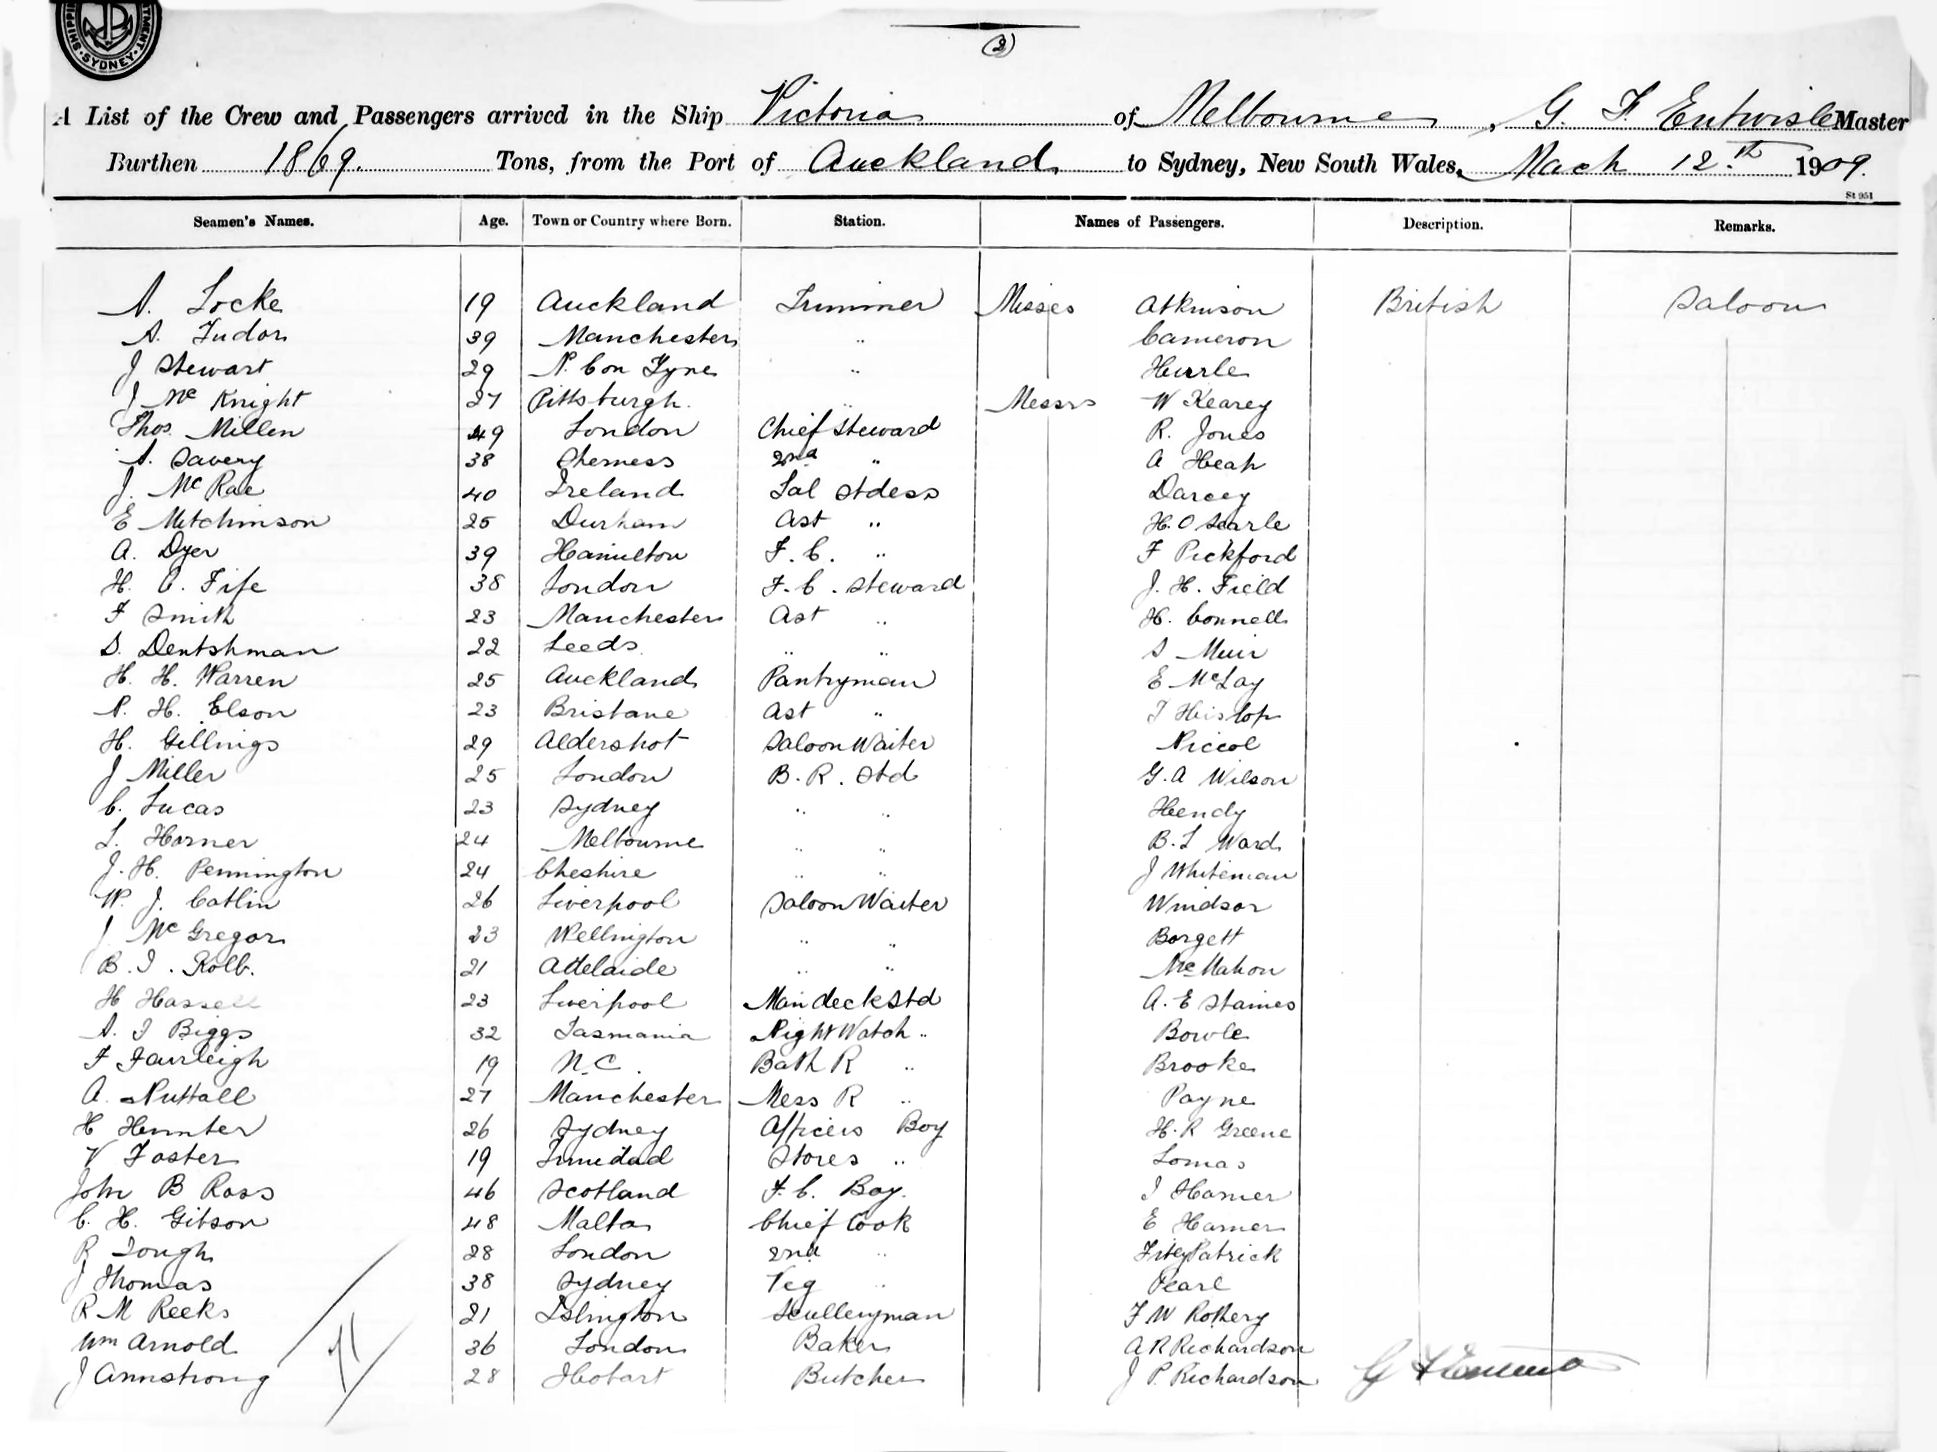 SHIPPING
SYDNEY
(2)
A List of the Crew and Passengers arrived in the Ship Victoria of Melbourne, G. F. Entwisle Master
Burthen 1869. Tons, from the Port of Auckland to Sydney, New South Wales, Mach 12th 1909.
St 951
Seamen's Names. Age. Town or Country where Born. Station. Names of Passengers. Description. Remarks.
A. Locke 19 Auckland Trimmer Misses Atkinson British Saloon
A. Tudor 39 Manchester " Cameron
J Stewart 29 N. C on Tyne " Hurle
J Mc Knight 27 Pittsburgh. " Messrs W Kearey
Thos. Millen 49 London Chief Steward R. Jones
A. Savery 38 Sherness 2nd " A Heah
J. Mc Rae 40 Ireland Sal Stdess Darcey
E Mitchinson 25 Durham Ast " H. O Searle
A. Dyer 39 Hamilton F. C. " F Pickford
H. C. Fife 38 London F. C. Steward J. H. Field
F Smith 23 Manchester Ast " H. Connell
S. Dentshman 22 Leeds. " " S Muir
H. H. Warren 25 Auckland Pantryman E McLay
N. H. Elson 23 Brisbane Ast " T Hislop
H. Gillings 29 Aldershot Saloon Waiter Niccol
J Miller 25 London B. R. Std G. A Wilson
C. Lucas 23 Sydney " " Hendy
L. Horner 24 Melbourne " " B. L Ward
J. H. Pennington 24 Cheshire " " J Whiteman
W. J. Catlin 26 Liverpool Saloon Waiter Windsor
J McGregor 23 Wellington " " Borgett
B. I. Rolb. 21 Adelaide " " McMahon
H Hassell 23 Liverpool Main deck Std A. E Staines
A. J Biggs 32 Tasmania Night Watch " Bowle
F Fairleigh 19 N. C. Bath R " Brooke
A. Nuttall 27 Manchester Mess R " Payne
H Hunter 26 Sydney Officers Boy H. R Greene
V Foster 19 Trinidad Stores " Lomas
John B Ross 46 Scotland F. C. Boy. J Hamer
C. H. Gibson 48 Malta Chief Cook E Hamer
R Tough 28 London 2nd " FitzPatrick
J Thomas 38 Sydney Veg " Pearl
R M Reeks 21 Islington Sculleryman F W Rothery
Wm Arnold 36 London Baker A R Richardson
J Armstrong 28 Hobart Butcher J P. Richardson